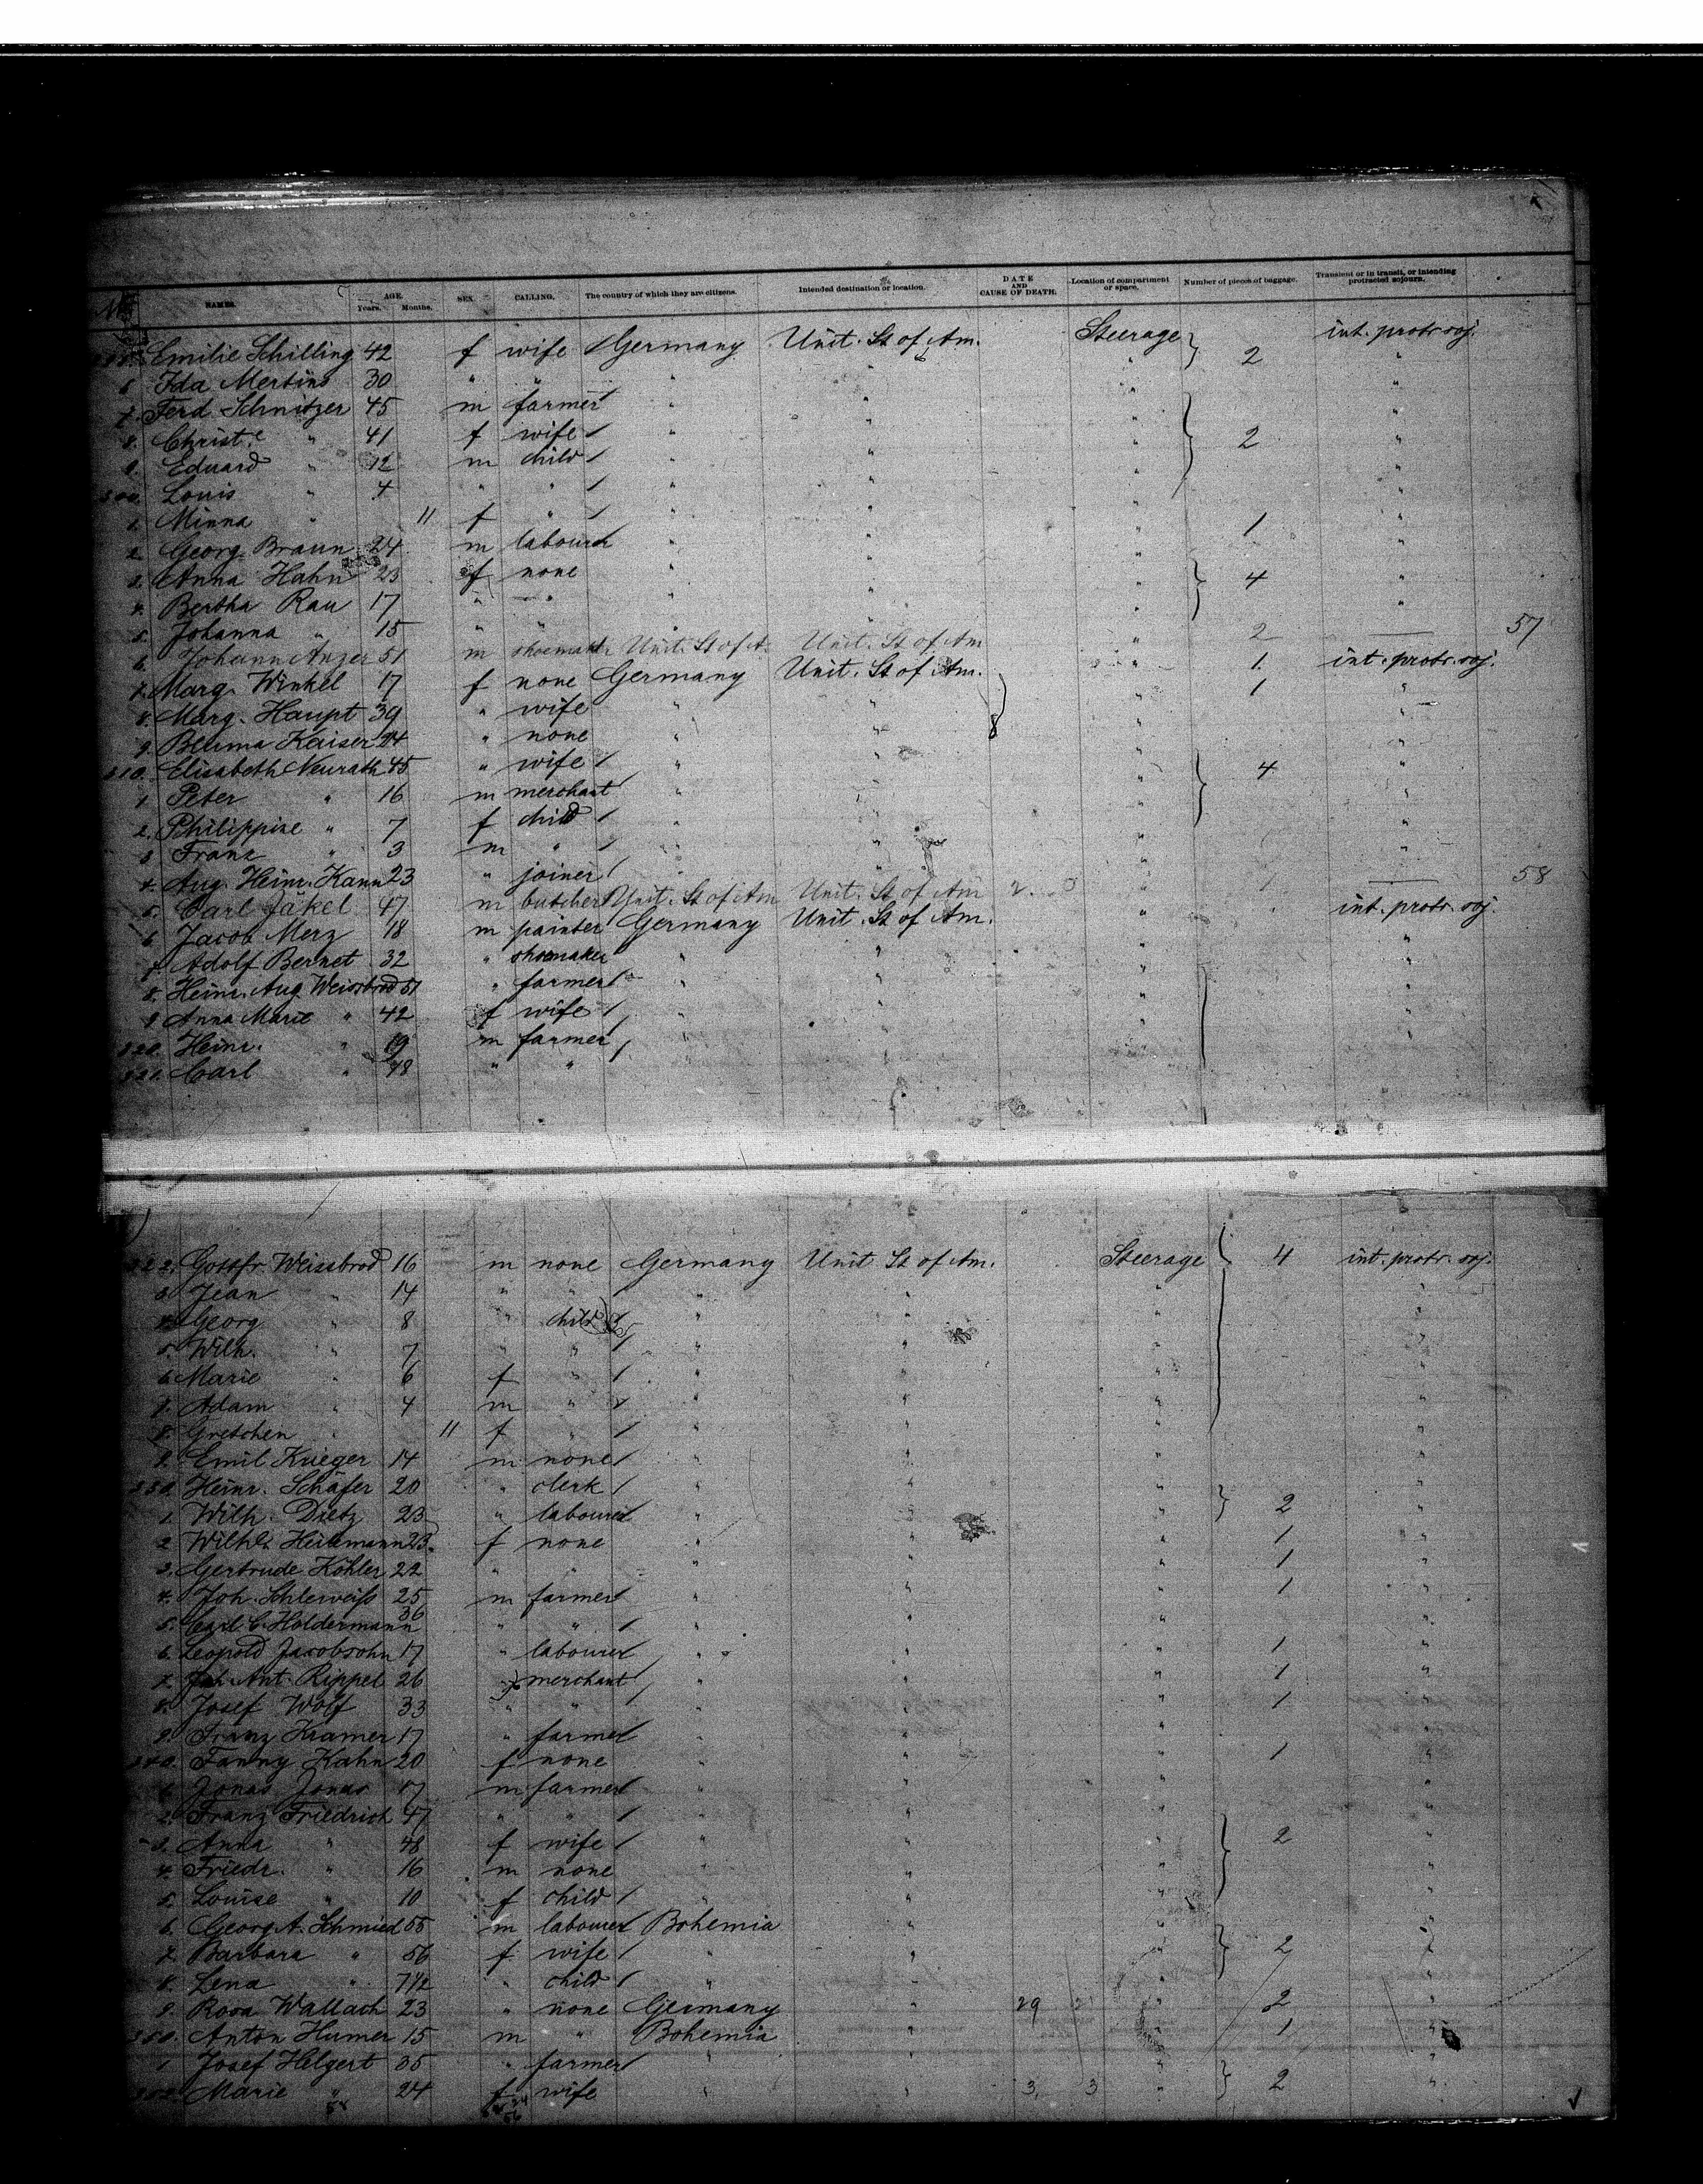 No. NAMES. AGE. Years. Months. SEX. CALLING. The country of which they are citizens. Intended destination or location. DATE AND CAUSE OF DEATH. Location of compartment or space. Number of pieces of baggage. Transient or in transit, or intending protracted sojourn.
Emilie Schilling 42 f wife Germany Unit. St of Am. Steerage } 2 int. protr. soj.
6 Ida Mertins 30 " " " " " "
7. Ferd Schnitzer 45 m farmer " " " "
8. Christ.e " 41 f wife " " " } 2 "
9. Eduard " 12 m child " " " "
300. Louis " 4 " " " " " "
1. Minna " 11 f " " " " "
2. Georg Braun 24 m labourer " " " 1 "
3. Anna Hahn 23 f none " " " } 4 "
4. Bertha Rau 17 " " " " " "
5. Johanna " 15 " " " " "
6. Johann Anger 51 m shoemaker Unit. St of A. Unit. St of Am " 2 — 57
7. Marg. Winkel 17 f none Germany Unit. St of Am. " 1. int. protr. soj.
8. Marg. Haupt 39 " wife " " " 1 "
9. Berma Kaiser 24 " none " " " "
310. Elisabeth Neurath 45 " wife " " " } 4 "
1 Peter " 16 m merchant " " " "
2. Philippine " 7 f child " " " "
3 Franz " 3 m " " " " "
4. Aug. Heinr. Kann 23 " joiner " " "
5. Carl Jäkel 47 m butcher Unit. St of Am Unit. St of Am " 1 — 58
6 Jacob Merz 18 m painter Germany Unit. St of Am. " int. protr. soj.
7 Adolf Bernet 32 " shoemaker " " " "
8. Heinr. Aug. Weissbrod 51 " farmer " " " "
9 Anna Marie " 42 f wife " " " "
320. Heinr. " 19 m farmer " " " "
321. Carl " 18 " "
322. Gottfr Weissbrod 16 m none Germany Unit St of Am. Steerage { 4 int. protr. soj.
3. Jean " 14 " " " " " "
4. Georg " 8 " child " " " "
5. Wilh. " 7 " " " " " "
6 Marie " 6 f " " " " "
7. Adam " 4 m " " " " "
8. Gretchen " 11 f " " " " "
9. Emil Krieger 14 m none " " " "
330. Heinr. Schäfer 20 " clerk " " " "
1. Wilh. Dietz 23 " labourer " " " } 2 "
2 Wilh. Heidemann 23. f none " " " 1 "
3. Gertrude Köhler 22 " " " " " 1 "
4. Joh. Schleweiss 25 m farmer " " " 1 "
5. Carl C. Holdermann 36 " " " " " "
6. Leopold Jacobsohn 17 " labourer " " " 1 "
7. Joh. Ant. Rippel 26 " merchant " " " 1 "
8. Josef Wolf 33 " " " " " 1 "
9. Franz Kramer 17 " farmer " " " "
340. Fanny Kahn 20 f none " " " 1 "
1. Jonas Jonas 17 m farmer " " " "
2. Franz Friedrich 47 " " " " " "
3. Anna " 48 f wife " " " } 2 "
4. Friedr. " 16 m none " " " "
5. Louise " 10 f child " " " "
6. Georg A. Schmied 55 m labourer Bohemia " " "
7. Barbara " 56 f wife " " " } 2 "
8. Lena " 7 1/2 " child " " " "
9. Rosa Wallach 23 " none Germany " 29 " 2 "
350. Anton Humer 15 m " Bohemia " " 1 "
1 Josef Helgert 35 " farmer " " " "
352. Marie " 24 f wife " " 3. 3 " } 2 "